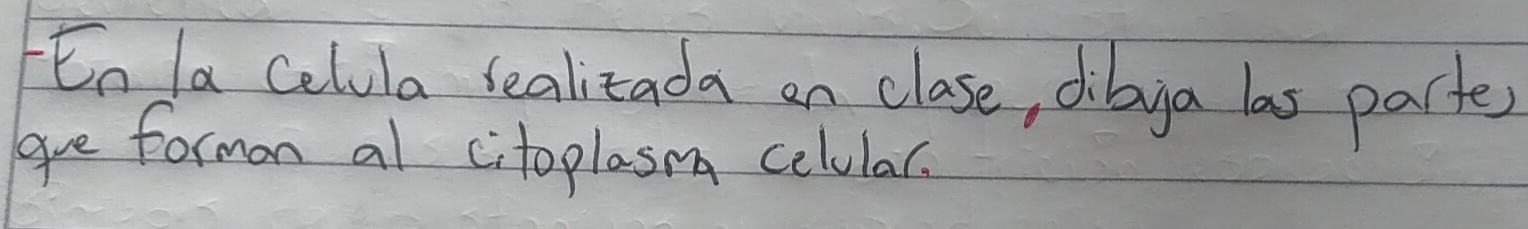 -En la celula realizada en clase, dibuja las partes
que forman al citoplasma celular.